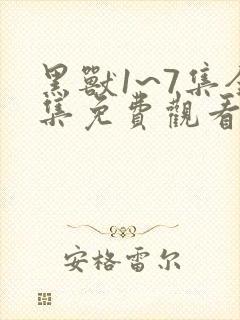 黑獸1~7集全
集免費觀看
安格雷尔